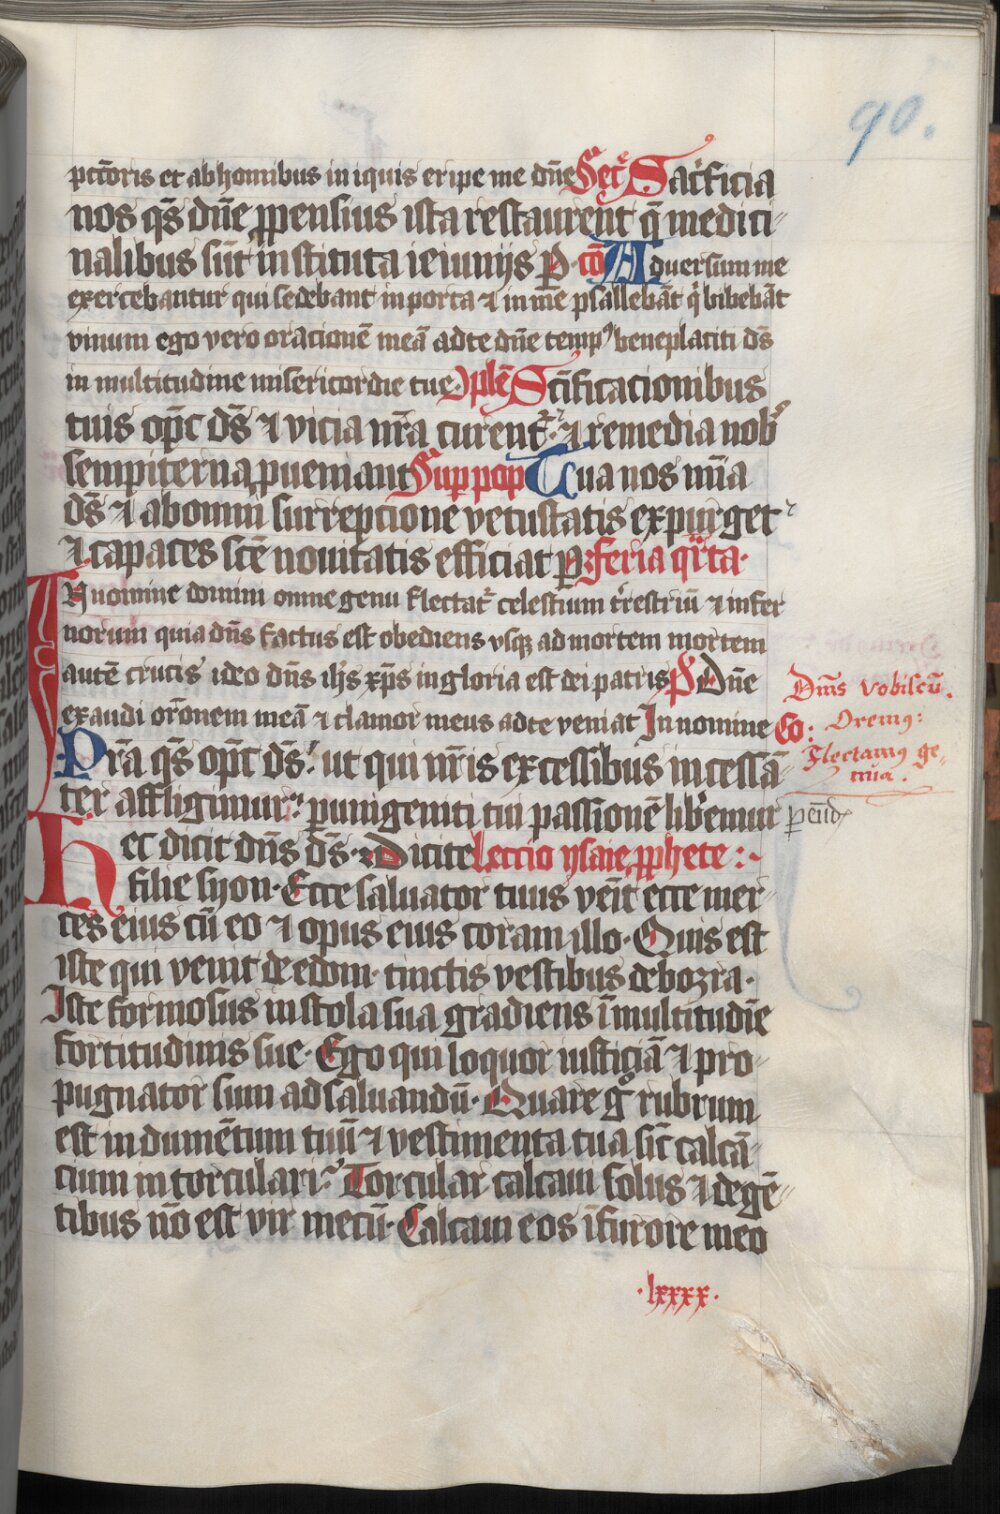 90.
pctōris et ab hominibus iniquis eripe me dn̄e Secͬ Sacͬificia
nos qs̄ dn̄e ꝓpensius ista restaurent q̄ medici
nalibus sūt instituta ieiunijs ꝑ cō Aduersum me
exercebantur qui sedebant in porta ⁊ in me psallebāt q̇ bibebāt
vinum ego vero oracionē meā ad te dn̄e tempꝰ beneplaciti ds̄
in multitudine misericordie tue plē Sc̄ificacionibus
tuis opc̄ ds̄ ⁊ vicia nr̄a curentᷣ ⁊ remedia nobꝭ
sempiterna ꝓueniant Sup pop Tua nos mīa
ds̄ ⁊ ab omni surrepcione vetustatis expurget
⁊ capaces sc̄e nouitatis efficiat ꝑ Feria qr̄ta
In nomine domini omne genu flectatᷣ celestium tͬrestriū ⁊ infer
norum quia dn̄s factus est obediens usqꝫ ad mortem mortem
autē crucis ideo dn̄s ih̄s xp̄s in gloria est dei patris Ps Dn̄e
exaudi orōnem meā ⁊ clamor meus ad te veniat In nomine Co:
Dn̄us vobiscū.
Oremꝰ:
Flectamꝰ ge-
nua.
Pr̄a qs̄ opc̄ ds̄ ut qui nr̄is excessibus incessā
ter affligimur ꝑ unigeniti tui passionē lib̄emur
ꝑ eūdꝭ
Hec dicit dn̄s ds̄ Dicite Leccio ysaie ꝓphete :
filie syon Ecce saluator tuus venit ecce mer
ces eius cū eo ⁊ opus eius coram illo Quis est
iste qui venit de edom tinctis vestibus de bozra
Iste formosus in stola sua gradiens ī multitudīe
fortitudinis sue Ego qui loquor iusticiā ⁊ pro
pugnator sum ad saluandū Quare gͦ rubrum
est indumētum tuū ⁊ vestimenta tua sic̄ calcā
cium in torculari Torcular calcaui solus ⁊ de gē
tibus nō est vir mecū Calcaui eos ī furore meo
lxxxx